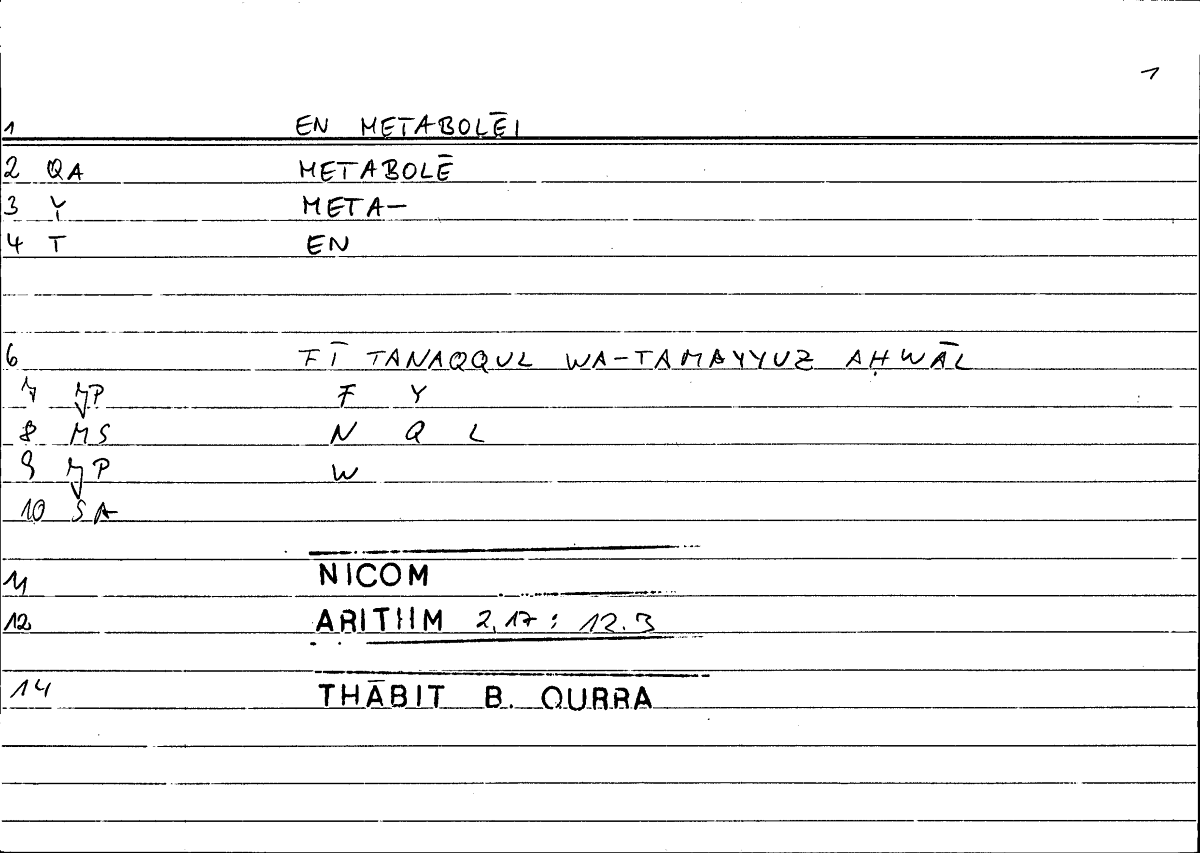 1
1 EN METABOLĒI
2 QA METABOLĒ
3 Y META-
4 T EN
6 FĪ TANAQQUL WA-TAMAYYUZ AḤWĀL
7 JP F Y
8 MS N Q L
9 JP W
10 SA
11 NICOM
12 ARITHM 2,17 : 12.3
14 THĀBIT B. QURRA